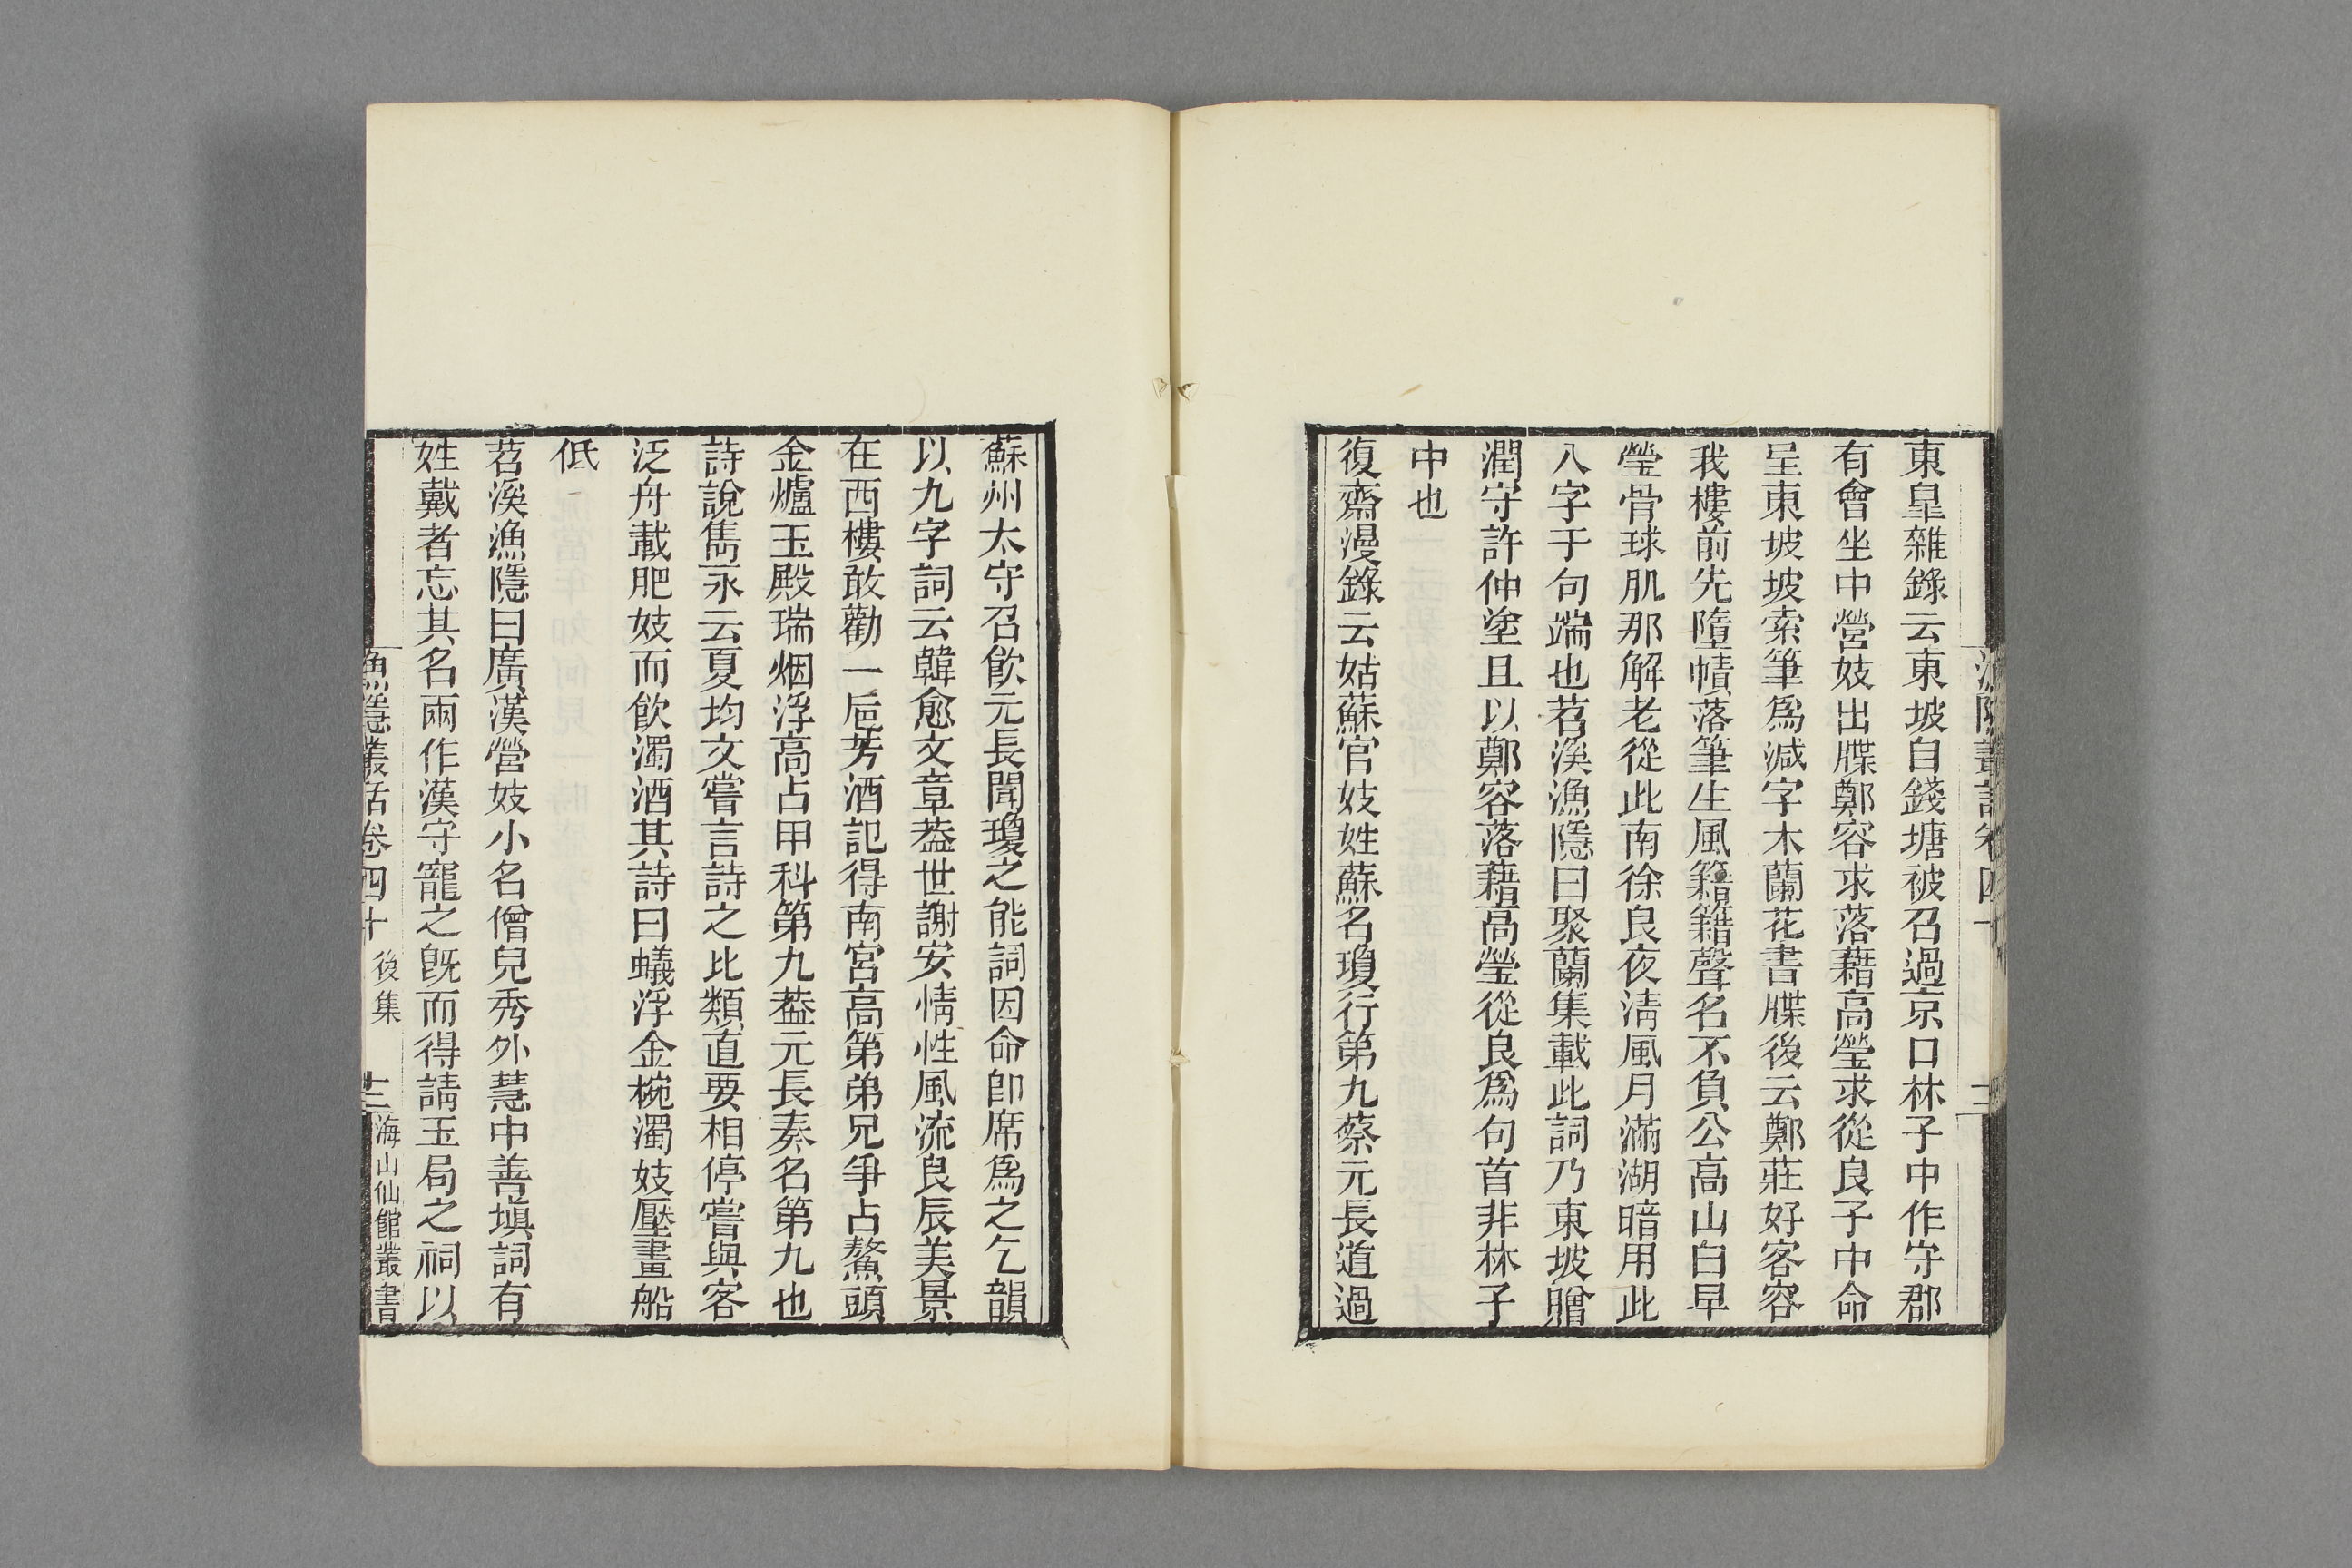 東臯雜錄云東坡自錢塘被召過京口林子中作守郡
有會坐中營妓出牒鄭容求落藉高瑩求從良子中命
呈東坡坡索筆爲減字木蘭花書牒後云鄭莊好客容
我樓前先墮幘落筆生風籍籍聲名不負公高山白早
瑩骨球肌那解老從此南徐良夜淸風月滿湖暗用此
八字于句端也苕溪漁隱曰聚蘭集載此詞乃東坡贈
潤守許仲塗且以鄭容落藉高瑩從良爲句首非林子
中也
復齋漫錄云姑蘇官妓姓蘇名瓊行第九蔡元長道過
蘇州太守召飮元長聞瓊之能詞因命卽席爲之乞韻
以九字詞云韓愈文章葢世謝安情性風流良辰美景
在西樓敢勸一巵芳酒記得南宮高第弟兄爭占鰲頭
金爐玉殿瑞烟浮高占甲科第九葢元長奏名第九也
詩說雋永云夏均文嘗言詩之比類直要相停嘗與客
泛舟載肥妓而飮濁酒其詩曰蟻浮金椀濁妓壓畫船
低
苕溪漁隱曰廣漢營妓小名僧兒秀外慧中善塡詞有
姓戴者忘其名兩作漢守寵之旣而得請玉局之祠以
漁隱叢話卷四十 後集 十二 海山仙館叢書